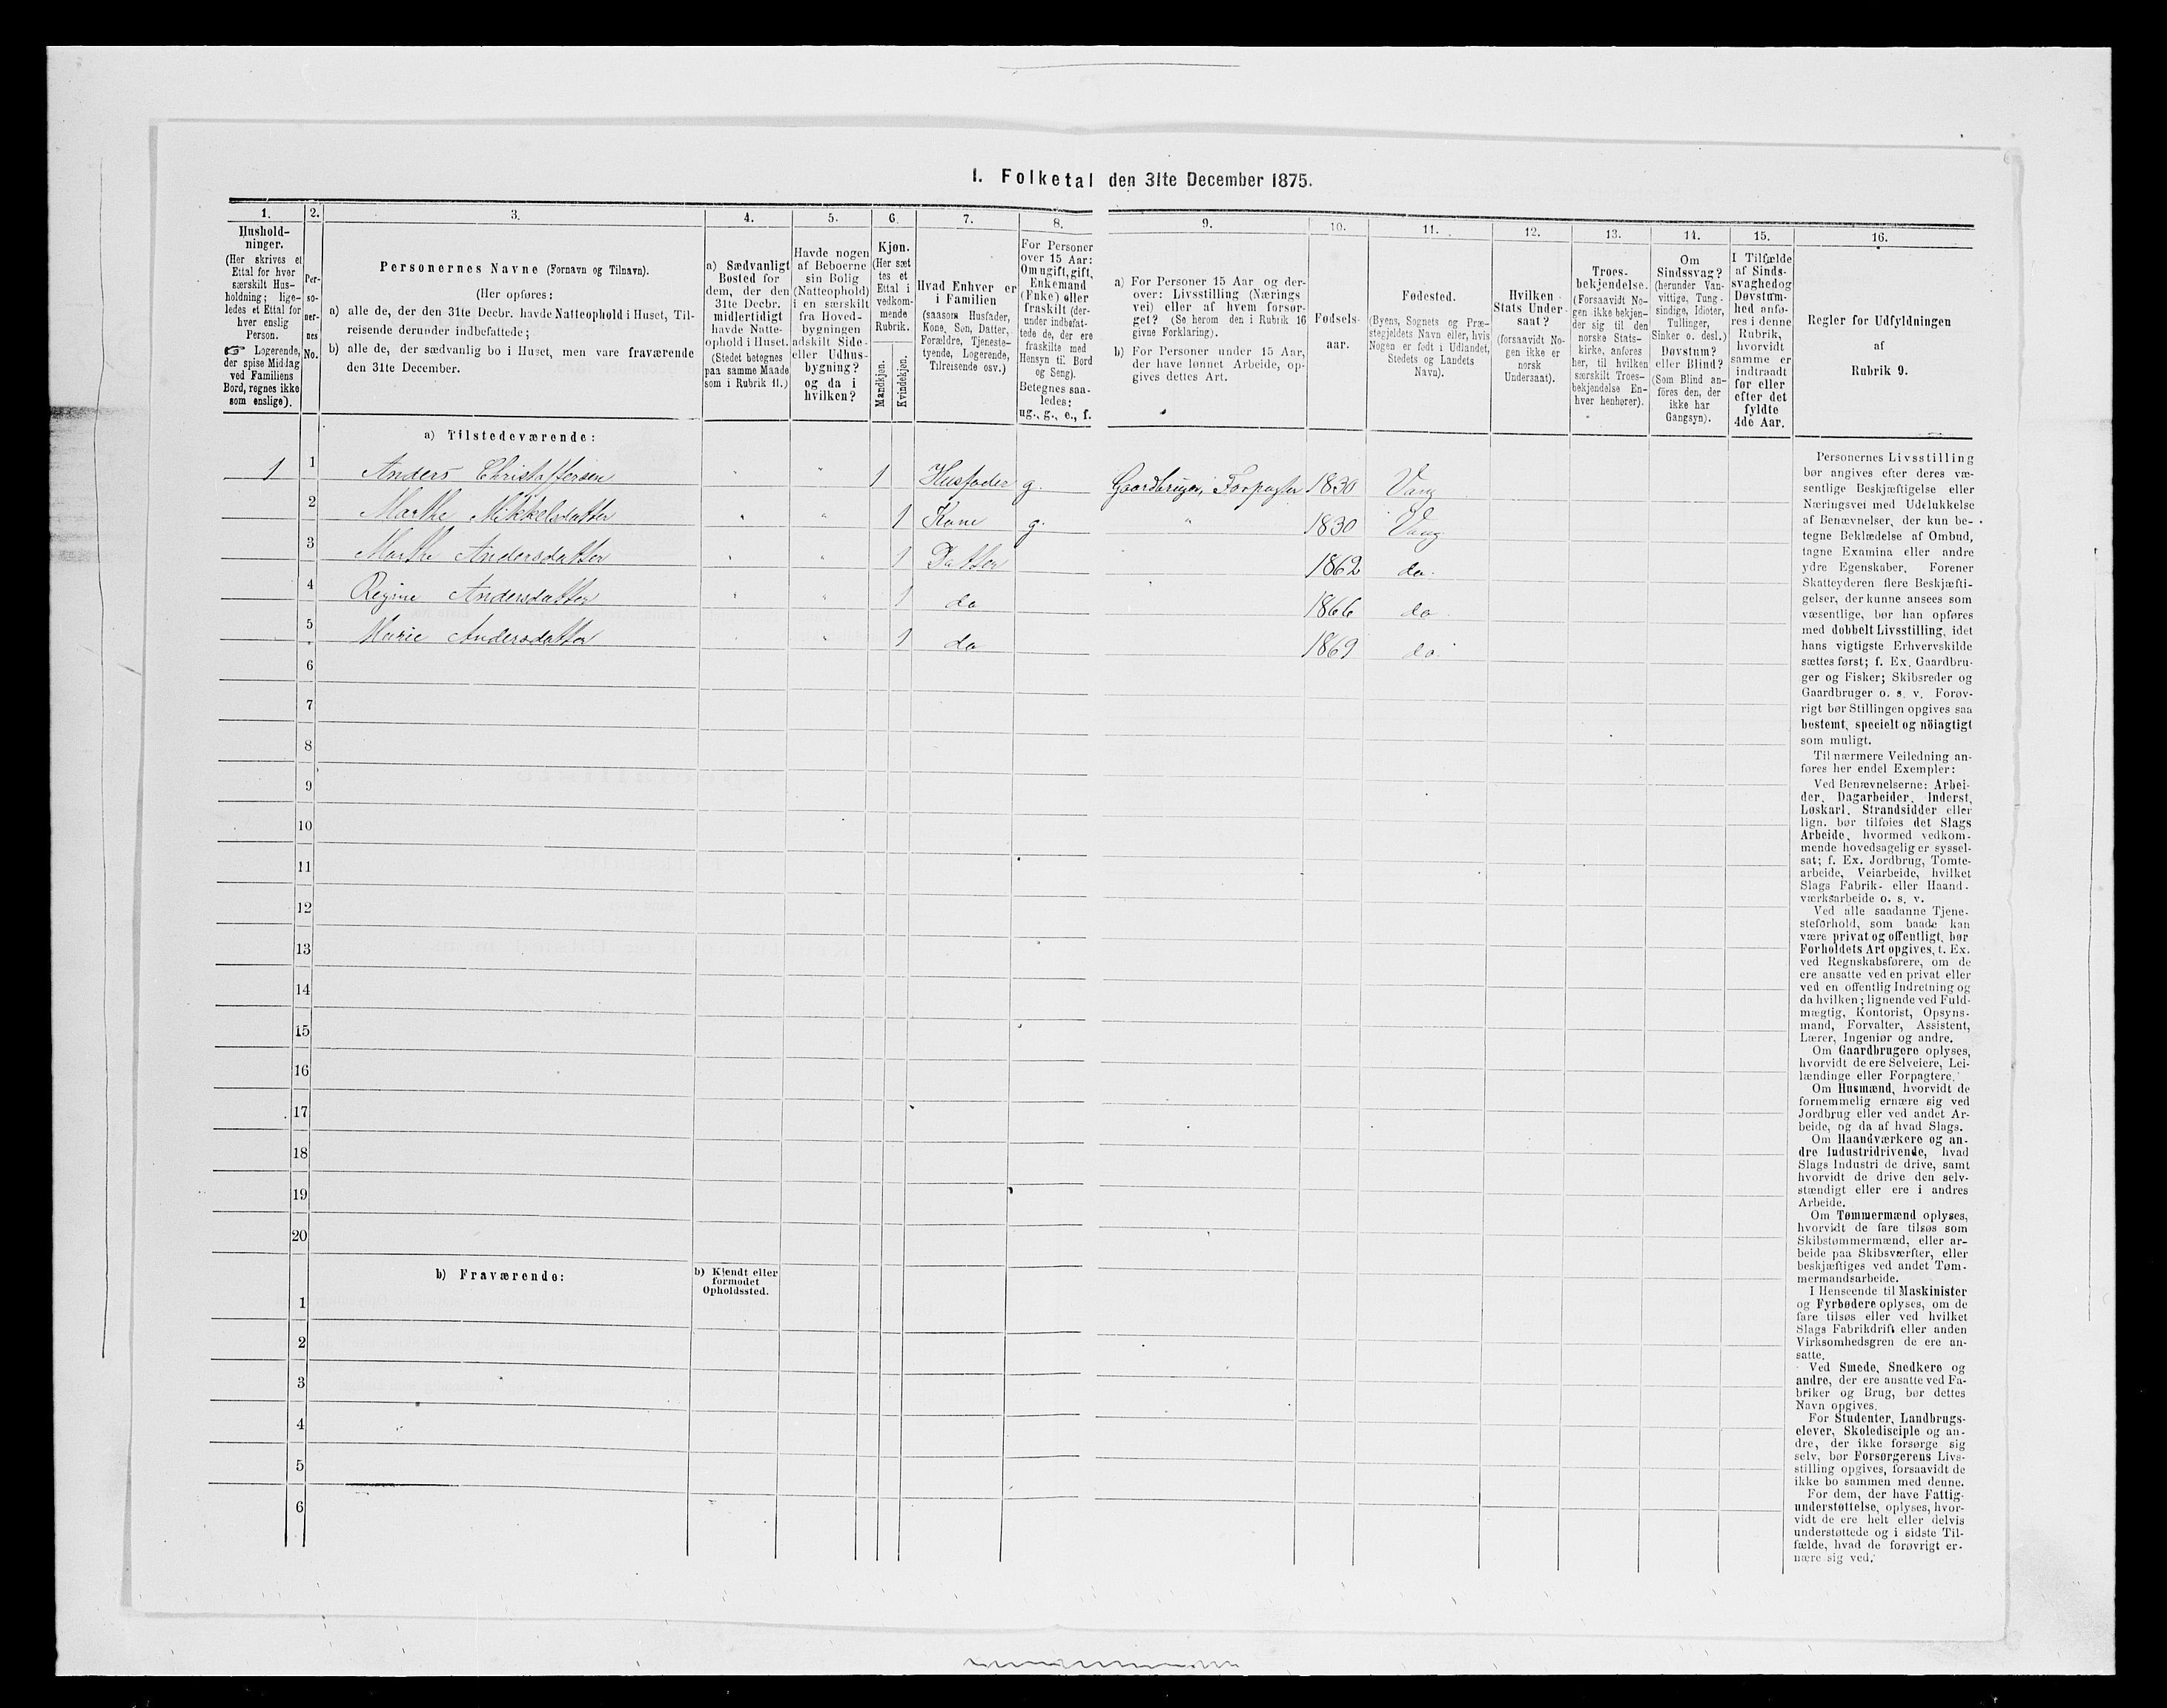 I. Folketal den 31te December 1875.
1.
Hushold-
ninger.
(Her skrives et
Ettal for hver
særskilt Hus-
holdning; lige-
ledes et Ettal for
hver enslig
Person.
☞ Logerende,
der spise Middag
ved Familiens
Bord, regnes ikke
som enslige).
2.
Per-
so-
ner-
nes
No.
3.
Personernes Navne (Fornavn og Tilnavn).
(Her opføres:
a) alle de, der den 31te Decbr. havde Natteophold i Huset, Til-
reisende derunder indbefattede;
b) alle de, der sædvanlig bo i Huset, men vare fraværende
den 31te December.
4.
a) Sædvanligt
Bosted for
dem, der den
31te Decbr.
midlertidigt
havde Natte-
ophold i Huset.
(Stedet betegnes
paa samme Maade
som i Rubrik 11.)
5.
Havde nogen
af Beboerne
sin Bolig
(Natteophold)
i en særskilt
fra Hoved-
bygningen
adskilt Side-
eller Udhus-
bygning?
og da i
hvilken?
6.
Kjøn.
(Her sæt
tes et
Ettal i
vedkom-
mende
Rubrik.
Mandkjøn.
Kvindekjøn.
7.
Hvad Enhver er
i Familien
(saasom Husfader,
Kone, Søn, Datter,
Forældre, Tjeneste-
tyende, Logerende,
Tilreisende osv.)
8.
For Personer
over 15 Aar:
Om ugift, gift,
Enkemand
(Enke) eller
fraskilt (der-
under indbefat-
tede de, der ere
fraskilte med
Hensyn til Bord
og Seng).
Betegnes saa-
ledes:
ug., g., e., f.
9.
a) For Personer 15 Aar og der-
over: Livsstilling (Nærings
vei) eller af hvem forsør-
get? (Se herom den i Rubrik 16
givne Forklaring).
b) For Personer under 15 Aar,
der have lønnet Arbeide, op-
gives dettes Art.
10.
Fødsels-
aar.
11.
Fødested.
(Byens, Sognets og Præ-
stegjeldets Navn eller, hvis
Nogen er født i Udlandet,
Stedets og Landets
Navn).
12.
Hvilken
Stats Under-
saat?
(forsaavidt No-
gen ikke er
norsk
Undersaat).
13.
Troes-
bekjendelse.
(Forsaavidt No-
gen ikke bekjen-
der sig til den
norske Stats-
kirke, anføres
her, til hvilken
særskilt Troes-
bekjendelse En-
hver henhører).
14.
Om
Sindssvag?
(herunder Van-
vittige, Tung-
sindige, Idioter,
Tullinger,
Sinker o. desl.)
Døvstum?
eller Blind?
(Som Blind an-
føres den, der
ikke har
Gangsyn).
15.
I Tilfælde
af Sinds-
svaghed og
Døvstum-
hed anfø-
res i denne
Rubrik,
hvorvidt
samme er
indtraadt
før eller
efter det
fyldte
4de Aar.
16.
Regler for Udfyldningen
af
Rubrik 9.
a) Tilstedeværende:
1 1 Anders Christoffersen " " 1 Husfader g. Gaardbruger, Forpagter 1830 Vang
2 Marthe Mikkelsdatter " " 1 Kone g. " 1830 Vang
3 Marthe Andersdatter " " 1 Datter 1862 do.
4 Regine Andersdatter " " 1 do 1866 do
5 Marie Andersdatter " 1 do 1869 do
6
7
8
9
10
11
12
13
14
15
16
17
18
19
20
b) Fraværende:
b) Kjendt eller
formodet
Opholdssted.
1
2
3
4
5
6
Personernes Livsstilling
bør angives efter deres væ-
sentlige Beskjæftigelse eller
Næringsvei med Udelukkelse
af Benævnelser, der kun be-
tegne Beklædelse af Ombud,
tagne Examina eller andre
ydre Egenskaber. Forener
Skatteyderen flere Beskjæfti-
gelser, der kunne ansees som
væsentlige, bør han opføres
med dobbelt Livsstilling, idet
hans vigtigste Erhvervskilde
sættes først; f. Ex. Gaardbru-
ger og Fisker; Skibsreder og
Gaardbruger o. s. v. Forøv-
rigt bør Stillingen opgives saa
bestemt, specielt og nöiagtigt
som muligt.
Til nærmere Veiledning an-
føres her endel Exempler:
Ved Benævnelserne: Arbei-
der, Dagarbeider, Inderst,
Løskarl, Strandsidder eller
lign. bør tilføies det Slags
Arbeide, hvormed vedkom-
mende hovedsagelig er syssel-
sat; f. Ex. Jordbrug, Tomte-
arbeide, Veiarbeide, hvilket
Slags Fabrik- eller Haand-
værksarbeide o. s. v.
Ved alle saadanne Tjene-
steforhold, som baade kan
være privat og offentligt, bør
Forholdets Art opgives, t. Ex.
ved Regnskabsførere, om de
ere ansatte ved en privat eller
ved en offentlig Indretning og
da hvilken; lignende ved Fuld-
mægtig, Kontorist, Opsyns-
mand, Forvalter, Assistent,
Lærer, Ingeniør og andre.
Om Gaardbrugere oplyses,
hvorvidt de ere Selveiere, Lei-
lændinge eller Forpagtere.
Om Husmænd, hvorvidt de
fornemmelig ernære sig ved
Jordbrug eller ved andet Ar-
beide, og da af hvad Slags.
Om Haandværkere og an-
dre Industridrivende, hvad
Slags Industri de drive, samt
hvorvidt de drive den selv-
stændigt eller ere i andres
Arbeide.
Om Tømmermænd oplyses,
hvorvidt de fare tilsøs som
Skibstømmermænd, eller ar-
beide paa Skibsværfter, eller
beskjæftiges ved andet Tøm-
mermandsarbeide.
I Henseende til Maskinister
og Fyrbødere oplyses, om de
fare tilsøs eller ved hvilket
Slags Fabrikdrift eller anden
Virksomhedsgren de ere an-
satte.
Ved Smede, Snedkere og
andre, der ere ansatte ved Fa-
briker og Brug, bør dettes
Navn opgives.
For Studenter, Landbrugs-
elever, Skoledisciple og an-
dre, der ikke forsørge sig
selv, bør Forsørgerens Livs-
stilling opgives, forsaavidt de
ikke bo sammen med denne.
For dem, der have Fattig-
understøttelse, oplyses, hvor-
vidt de ere helt eller delvis
understøttede og i sidste Til-
fælde, hvad de forøvrigt er-
nære sig ved.